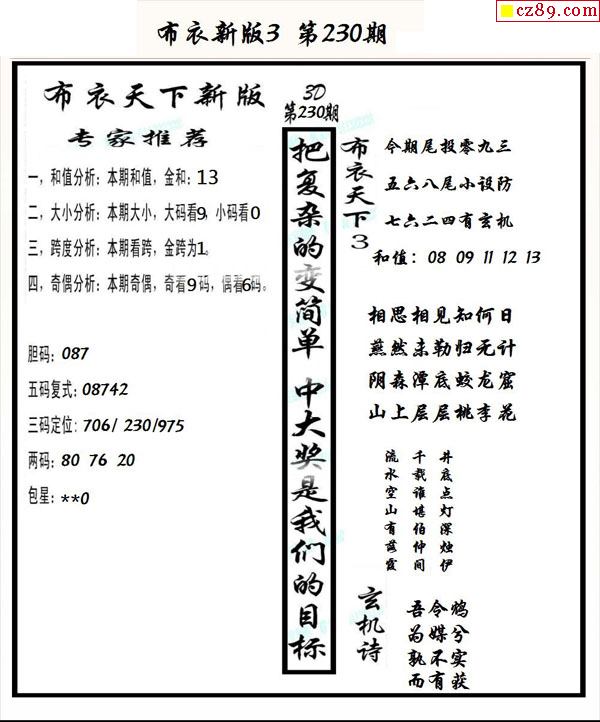 cz89.com
布衣新版3 第230期
布衣天下新版
专家推荐
一，和值分析：本期和值，金和：13
二，大小分析：本期大小，大码看9，小码看0
三，跨度分析：本期看跨，金跨为1。
四，奇偶分析：本期奇偶，奇看9码，偶看6码。
胆码：087
五码复式：08742
三码定位：706/ 230/975
两码：80 76 20
包星：**0
3D
第230期
把复杂的变简单 中大奖是我们的目标
布衣天下3
今期尾投零九三
五六八尾小设防
七六二四有玄机
和值：08 09 11 12 13
相思相见知何日
燕然未勒归无计
阴森潭底蛟龙窟
山上层层桃李花
井底点灯深烛伊
千载谁堪伯仲间
流水空山有落霞
玄机诗
吾令鸩
为媒兮
孰不实
而有获